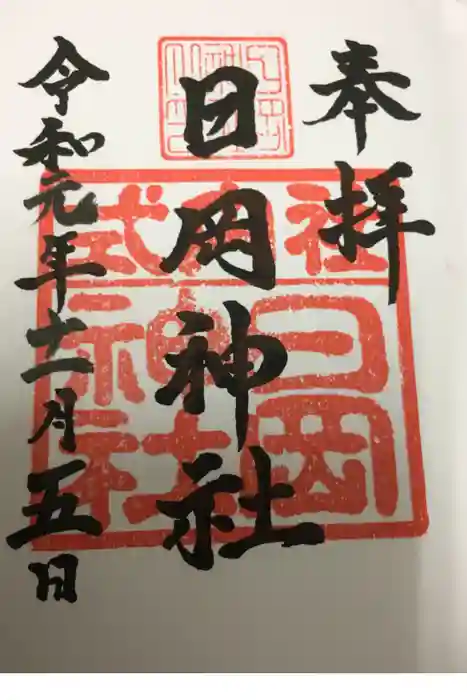 奉拝
日岡神社
式内社
日岡神社
令和元年十一月五日